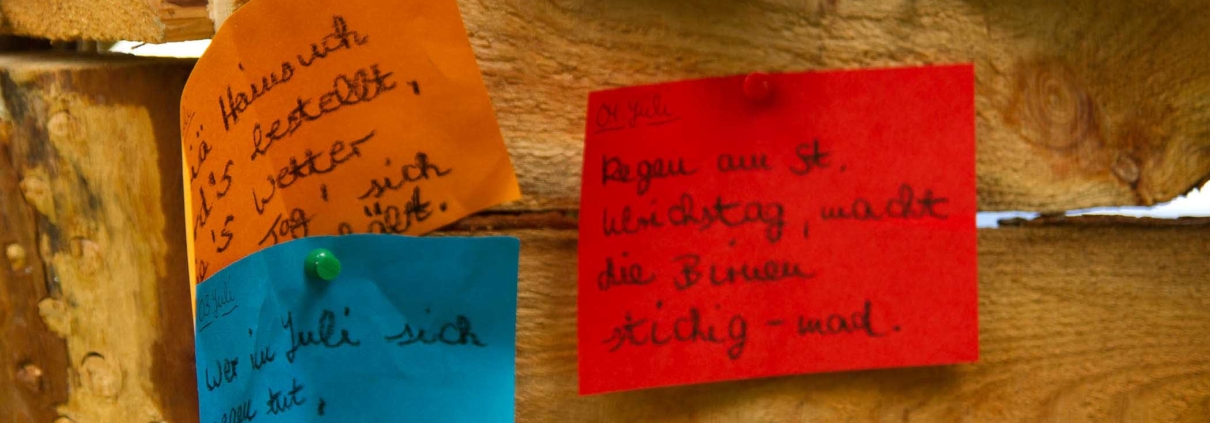 Heinsuch
bestellt,
wetter
Tag, sich
hält.
03. Juli
Wer im Juli sich
regen tut,
04. Juli
Regen am St.
Ulrichstag, macht
die Birnen
stichig-mad.